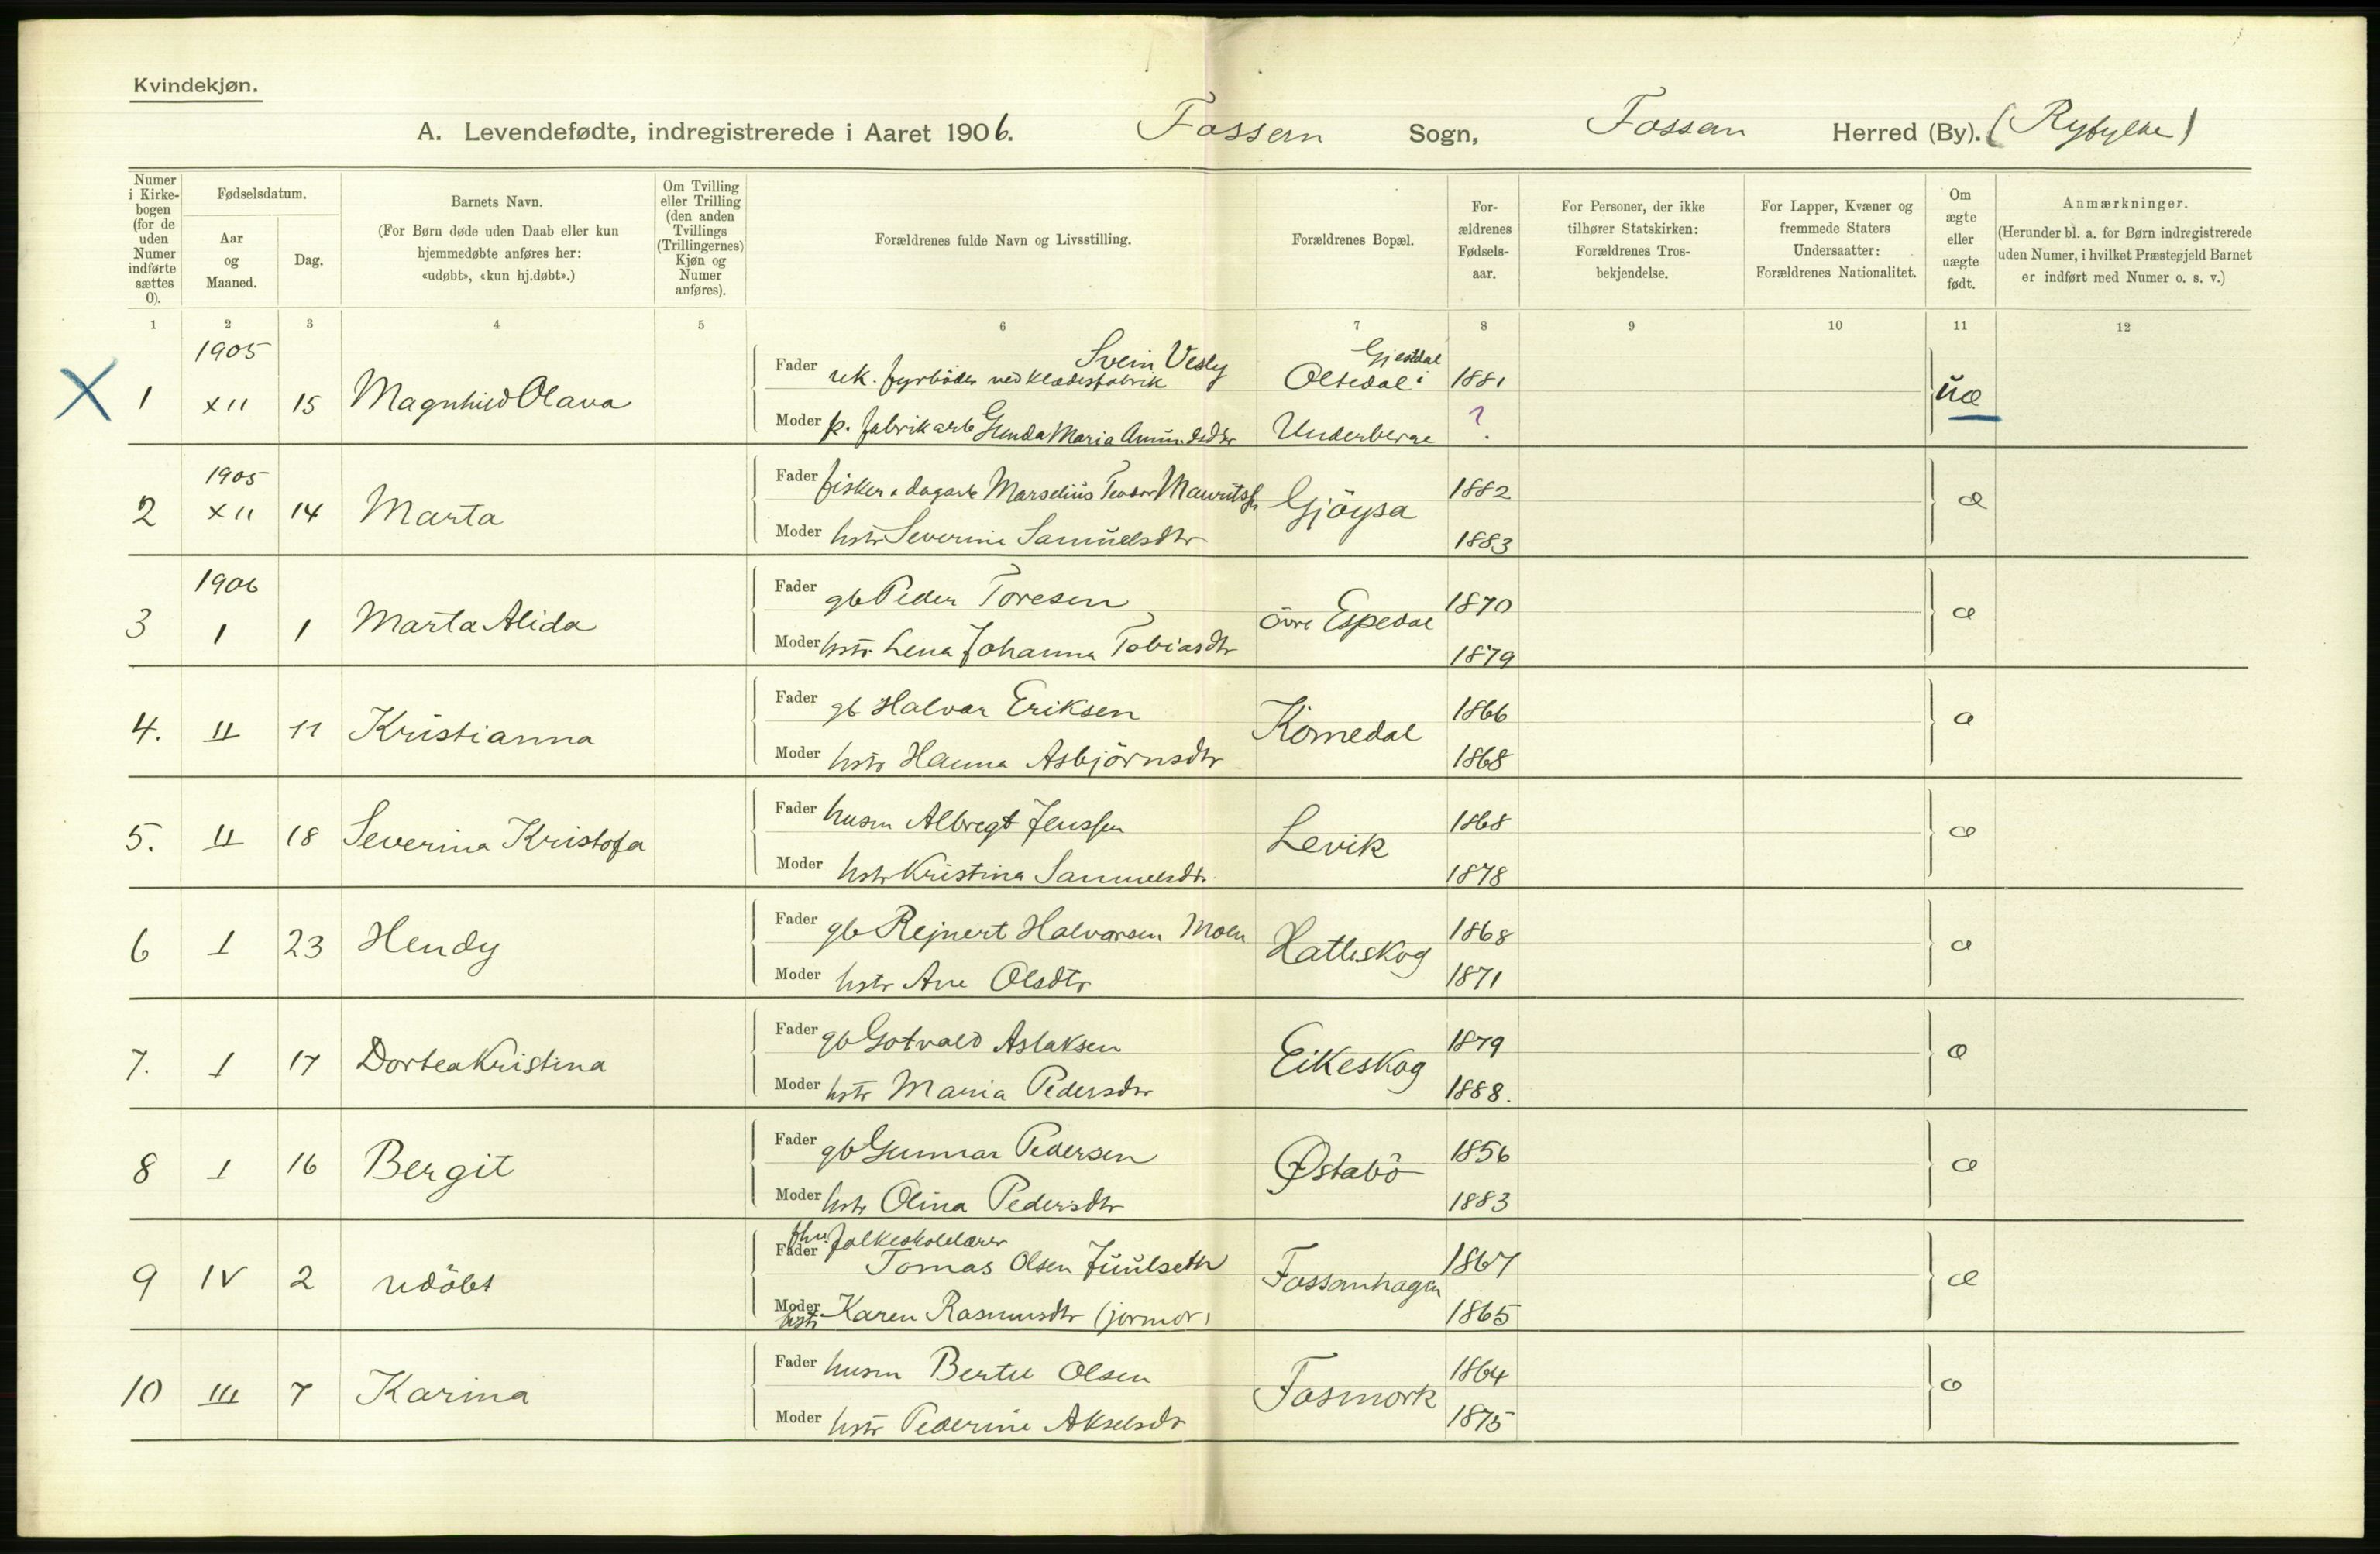 Kvindekjøn.
A. Levendefødte, indregistrerede i Aaret 1906. Fossan Sogn, Fossan Herred (By). (Ryfylke)
Numer i Kirkebogen (for de uden Numer indførte sættes 0).
Fødselsdatum.
Aar og Maaned.
Dag.
Barnets Navn.
(For Børn døde uden Daab eller kun hjemmedøbte anføres her: «udøbt», «kun hj.døbt».)
Om Tvilling eller Trilling (den anden Tvillings (Trillingernes) Kjøn og Numer anføres).
Forældrenes fulde Navn og Livsstilling.
Forældrenes Bopæl.
Forældrenes Fødselsaar.
For Personer, der ikke tilhører Statskirken: Forældrenes Trosbekjendelse.
For Lapper, Kvæner og fremmede Staters Undersaatter: Forældrenes Nationalitet.
Om ægte eller uægte født.
Anmærkninger.
(Herunder bl. a. for Børn indregistrerede uden Numer, i hvilket Præstegjeld Barnet er indført med Numer o. s. v.)
1 2 3 4 5 6 7 8 9 10 11 12
X 1 1905 XII 15 Magnhild Olava
Fader uk. fyrböder ved klædesfabrik Svein Vesly Oltedal i Gjesdal 1881 uæ
Moder p. fabrikarb Gunda Maria Amundsdtr Underberge ?
2 1905 XII 14 Marta
Fader fisker & dagarb Marselius Teodor Mauritsn Gjöysa 1882 æ
Moder hstr Severine Samuelsdtr 1883
3 1906 I 1 Marta Alida
Fader gb Peder Toresen övre Espedal 1870 æ
Moder hstr Lena Johanna Tobiasdtr 1879
4. II 11 Kristianna
Fader gb Halvar Eriksen Komedal 1866 æ
Moder hstr Hanna Asbjörnsdtr 1868
5. II 18 Severina Kristofa
Fader husm Albregt Jenssen Levik 1868 æ
Moder hstr Kristina Samuelsdtr 1878
6 I 23 Hendy
Fader gb Rejnert Halvorsen Moen Hatleskog 1868 æ
Moder hstr Ane Olsdtr 1871
7. I 17 Dortea Kristina
Fader gb Gotvald Aslaksen Eikeskog 1879 æ
Moder hstr Maria Pedersdtr 1888.
8 I 16 Bergit
Fader gb Gunnar Pedersen Østabö 1856 æ
Moder hstr Olina Pedersdtr 1883
9 IV 2 udöbt
Fader fhv. folkeskolelærer
Tomas Olsen Juulseth Fossanhagen 1867 æ
Moder hstr Karen Rasmusdtr (jormor) 1865
10 III 7 Karina
Fader husm Bertel Olsen Fosmork 1864 æ
Moder hstr Pederine Akselsdtr 1875